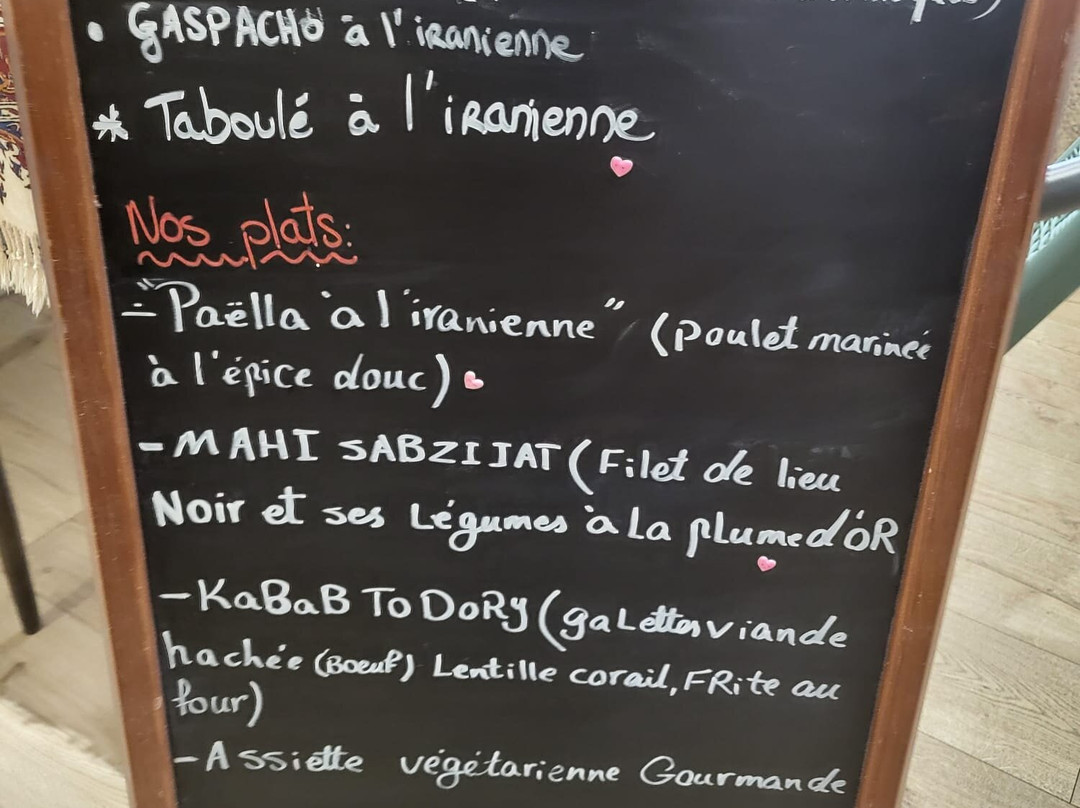 • GASPACHO à l'iranienne
* Taboulé à l'iranienne
Nos plats:
- "Paëlla à l'iranienne" (Poulet marineé
à l'épice douc)
- MAHI SABZIJAT (Filet de lieu
Noir et ses Légumes à La plume d'OR
- KaBaB ToDoRy (gaLettes viande
hachée (Boeuf) Lentille corail, FRite au
four)
- Assiette végétarienne Gourmande